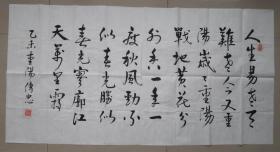 人生易老天
難老今又重
陽歲々重陽
戰地黄花分
外香一年一
度秋風勁不
似春光勝似
春光寥廓江
天萬里霜
乙未重陽傳忠